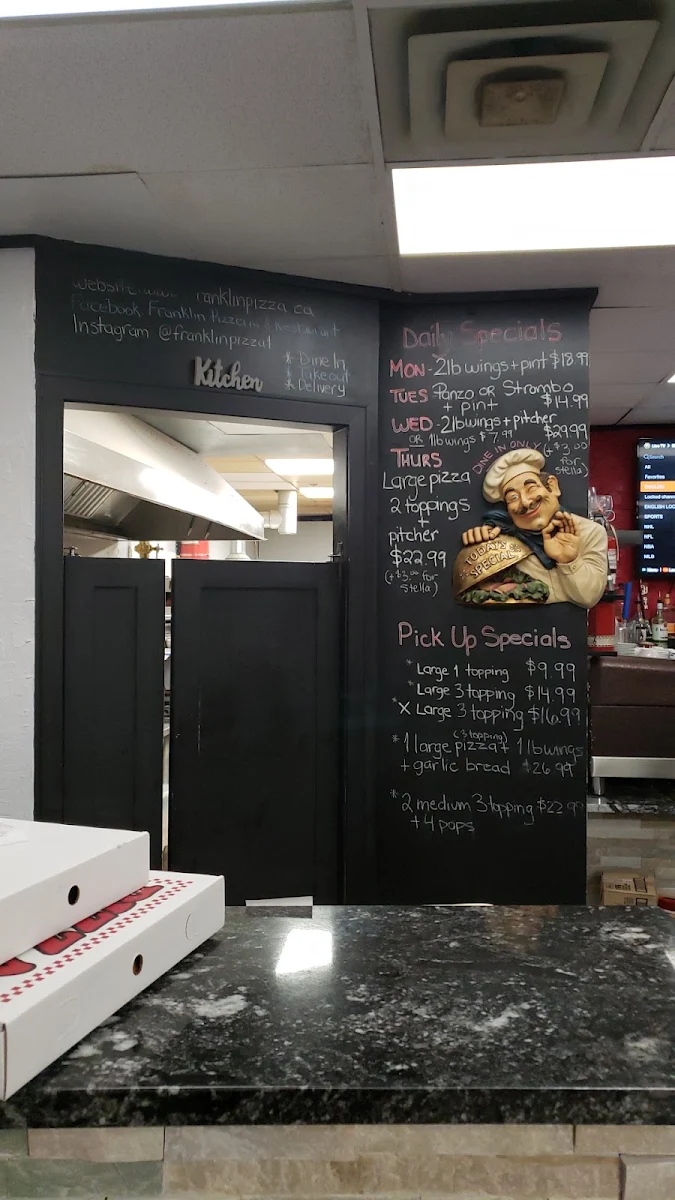 Website www. ranklinpizza ca
Facebook Franklin Pizzeria Restaurant
Instagram @franklinpizza1
* Dine In
* Takeout
* Delivery
Kitchen
Daily Specials
MON - 2lb wings + pint $18.99
TUES Panzo OR Strombo
+ pint $14.99
WED - 2lb wings + pitcher
OR 1lb wings $7.99 $29.99
DINE IN ONLY (+$3.00
for
Stella)
THURS
Large pizza
2 toppings
+
pitcher
$22.99
(+$3.00 for
Stella)
TODAY'S
SPECIAL
Pick Up Specials
* Large 1 topping $9.99
* Large 3 topping $14.99
* X Large 3 topping $16.99
(3 topping)
* 1 large pizza + 1 lb wings
+ garlic bread $26.99
* 2 medium 3 topping $22.99
+ 4 pops
Live TV
Search
All
Favorites
ENGLISH
Locked chann
ENGLISH LOC
SPORTS
NHL
NFL
NBA
MLB